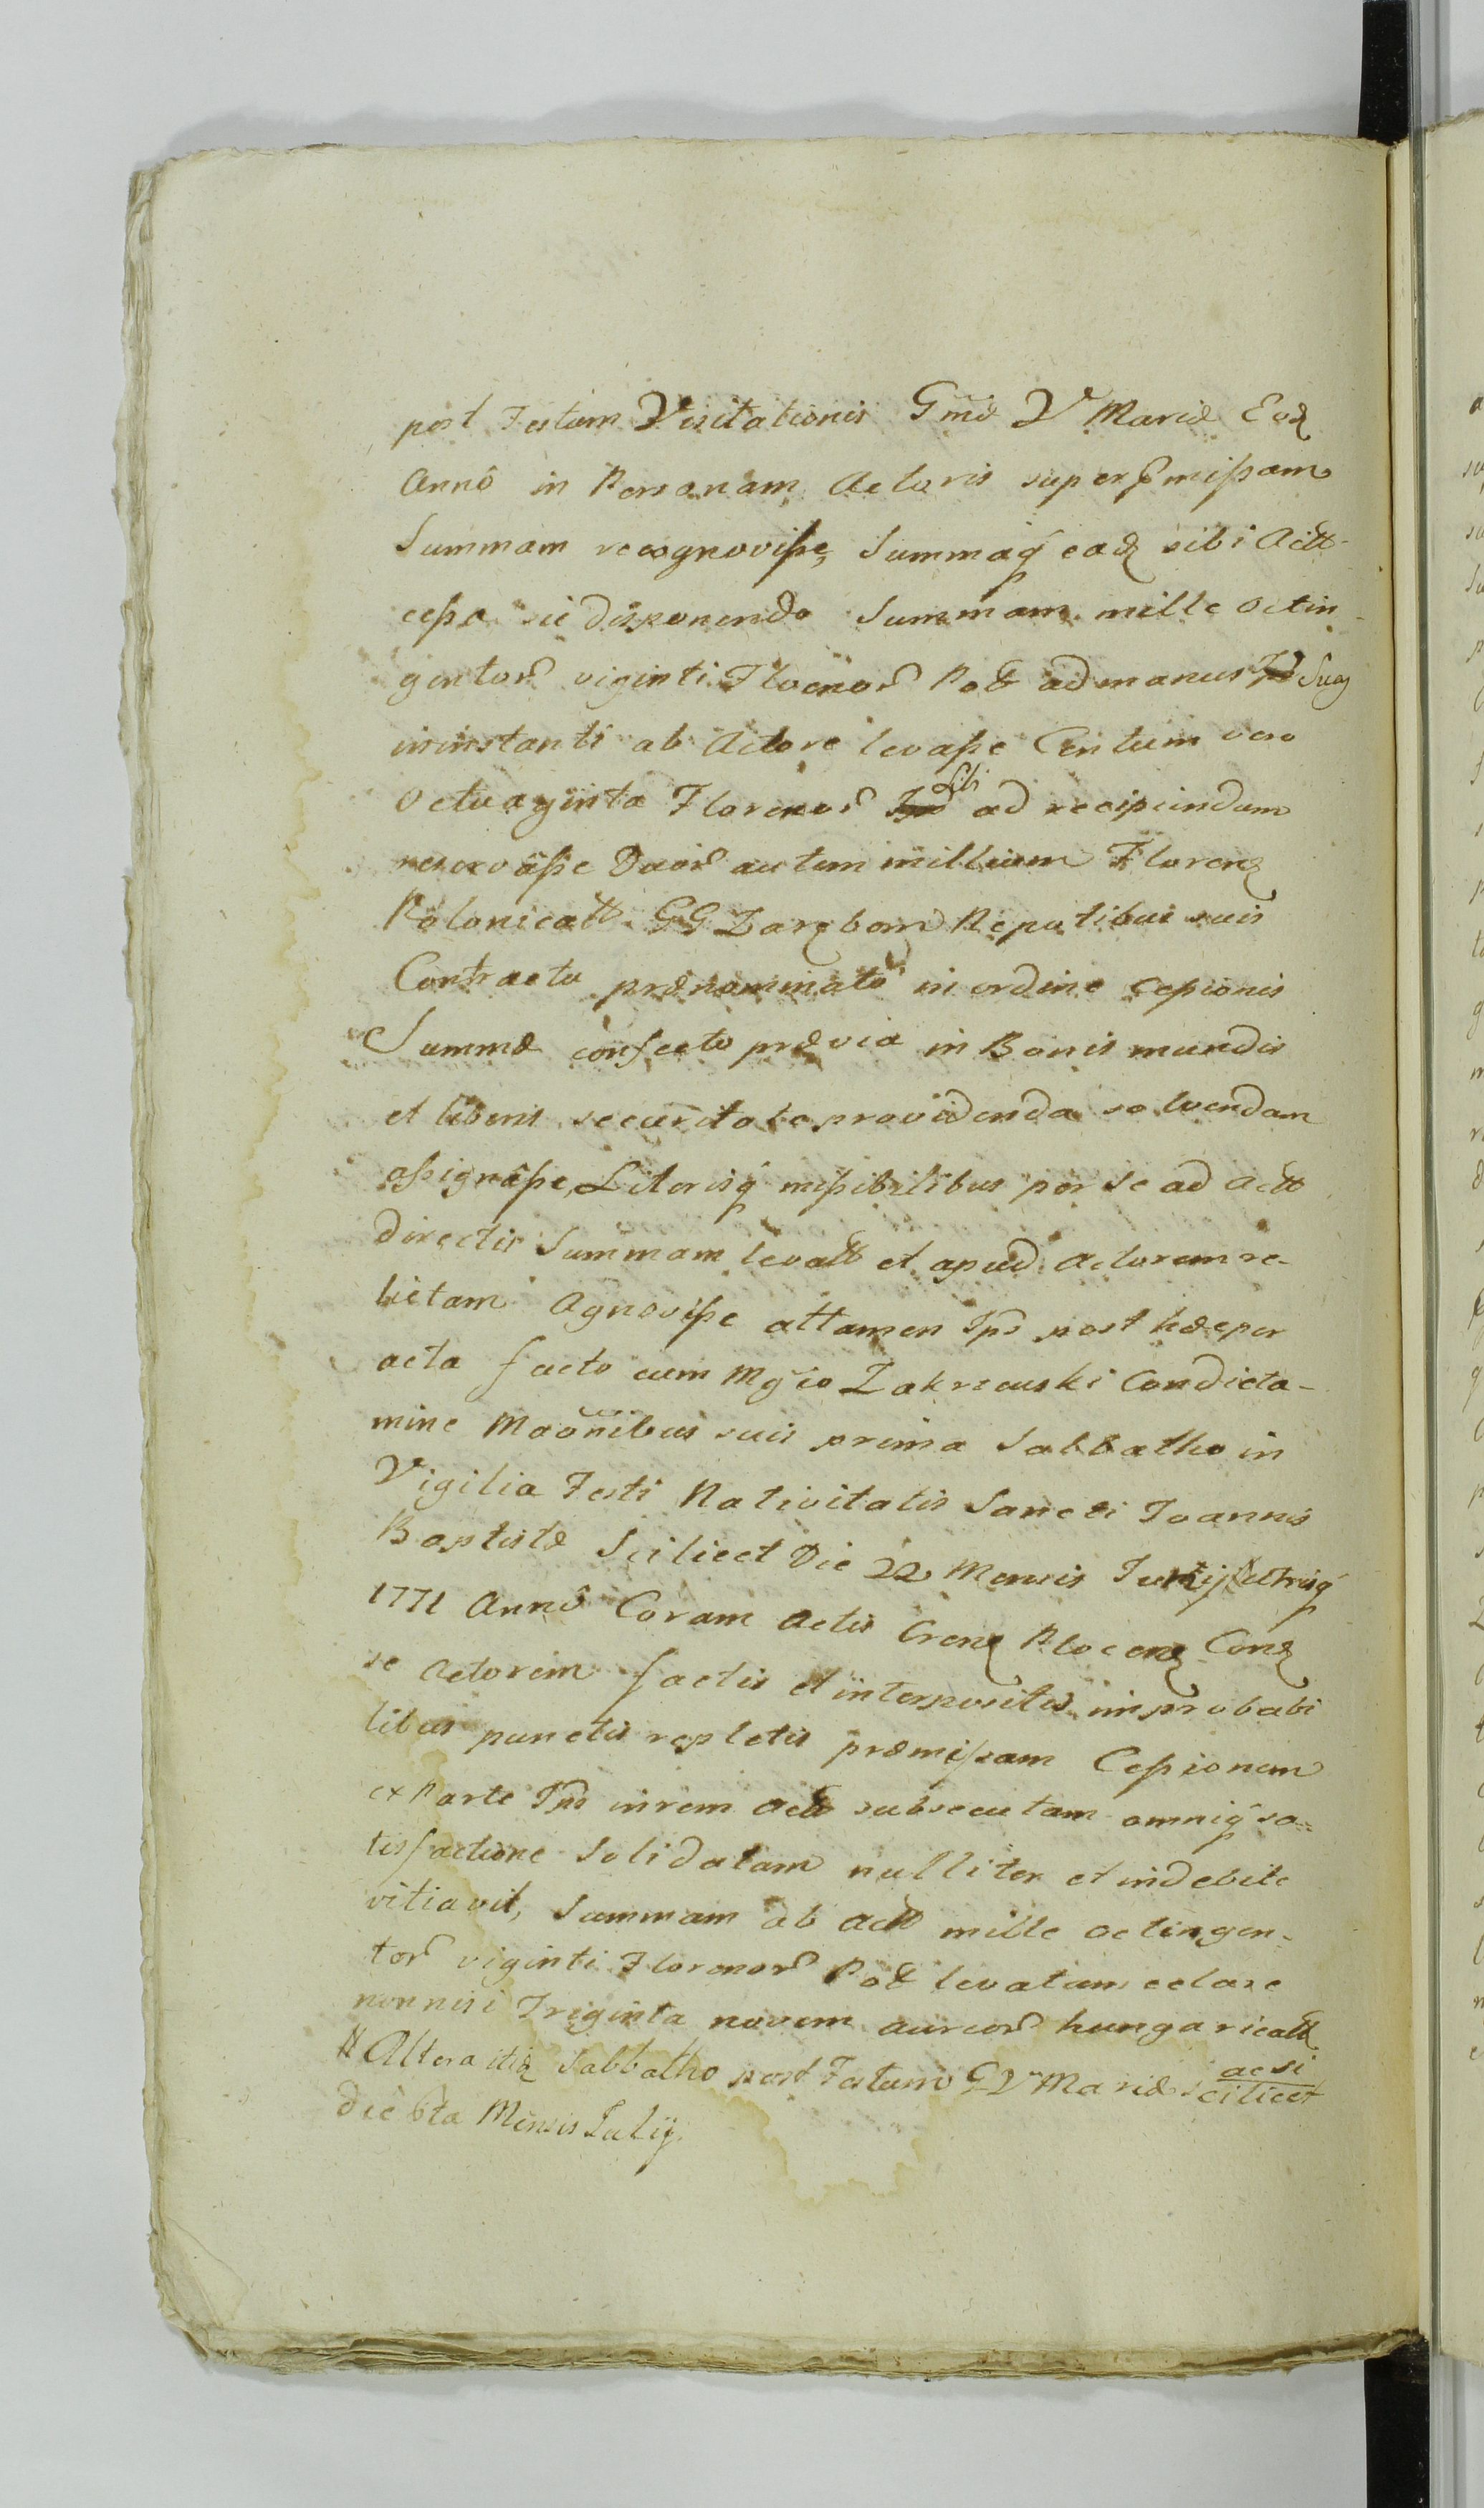 post Festum Visitationis Gm̃æ V Mariæ Eoꝗ
Annô in Personam Actoris super p̃mißam
Summam recognoviße, Summaq́ eaꝗ sibi Actt
ceßa sic disponendo Summam mille octin-
gentor̃ viginti Florenor̃ Pol ad manus Suaş
in instanti ab Actore levaße Centum vero
Octuaginta Florenor̃ Sibi ad recipiendum
reservaße Duor̃ autem millium Florenꝗ
Polonicatt GG Zarębom Nepotibus suis
Contractu prænominatô in ordine ceßionis
Summæ confecto prævia in Bonis mundis
et liberis securitate providenda solvendam
aßignâße, Literisq́ mißibilibus per se ad Actt
directis Summam levatt et apud Actorem re-
lictam Agnoviße attamen Ips̃ post hæc per
acta facto cum Mg̃co Zakrzewski Condicta-
mine Maõnibus suis prima Sabbatho in
Vigilia Festi Nativitatis Sancti Joannis
Baptistæ Scilicet Die 22 Mensis Junij # utrisq́
1771 Annô Coram Actis Crenꝗ Plocenꝗ Conꝗ
se Actorem factis et interpositis improbabi
libus punctis repletis præmißam Ceßionem
ex Parte Ips̃ in rem Actt subsecutam omniq́ sa-
tisfactione Solidatam nulliter et indebite
vitiavit, Summam ab Actt mille octingen-
tor̃ viginti Florenor̃ Pol levatam celare
non nisi Triginta novem aureor̃ hungaricatt
ac si
# Altera itiꝗ Sabbatho post Festum G V Mariæ scilicet
die 6ta Mensis Julij.